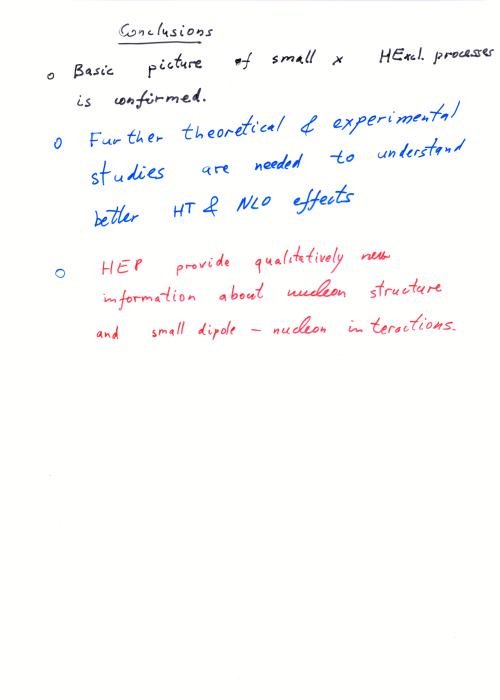 Conclusions
o Basic picture of small x HExcl. processes
is confirmed.
o Further theoretical & experimental
studies are needed to understand
better HT & NLO effects
o HEP provide qualitatively new
information about nucleon structure
and small dipole - nucleon interactions.